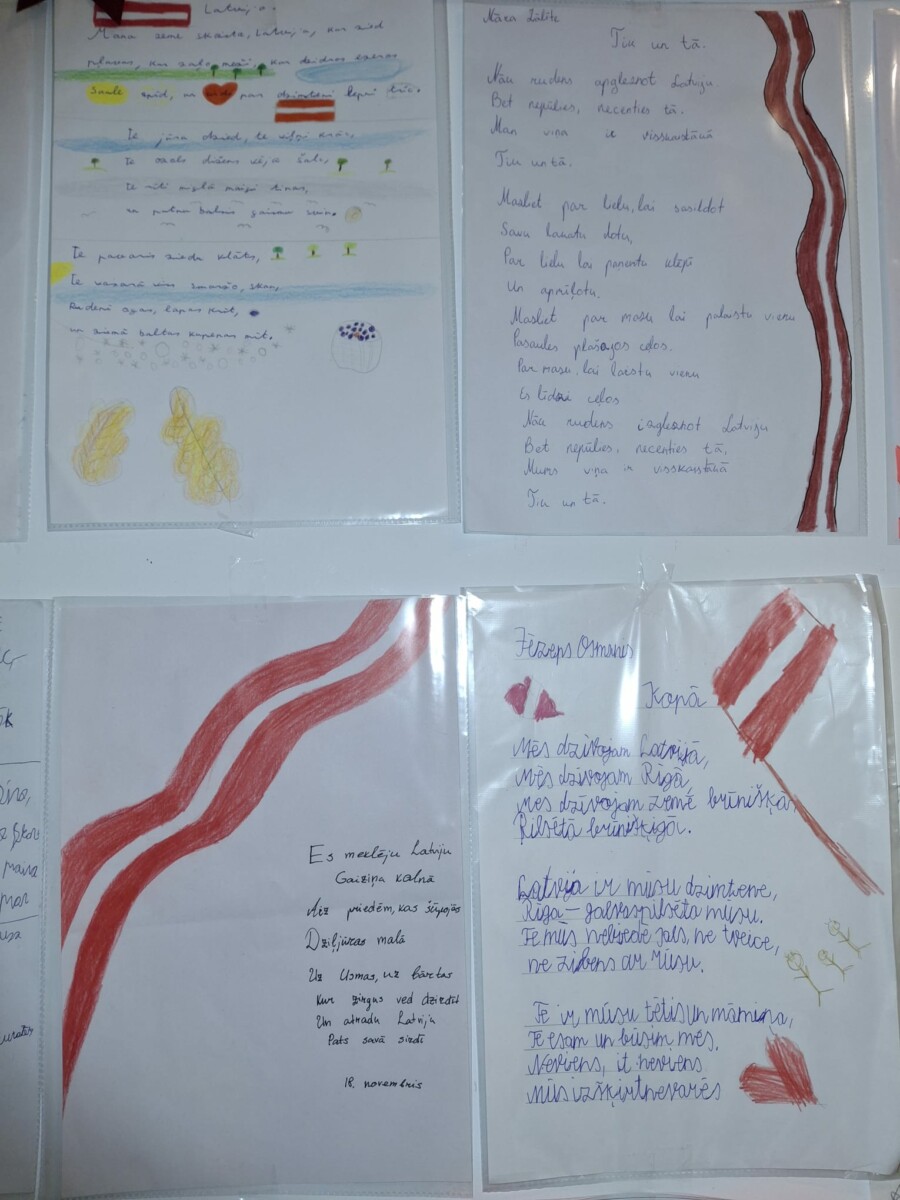 Latvija.
Mana zeme skaista, Latvija, kur zied
pļavas, kur zaļo meži, kur dzidras ezeros
Saule spīd, un sirds par dzimteni lepni trīc.
Te jūra dzied, te viļņi krāc,
Te ozols dižens vējā šalc,
Te rīti miglā maigi tinas,
un putnu balsis gaisam zina.
Te pavasaris ziedu klāts,
Te vasarā viss smaržo, skan,
Rudenī ogas, lapas krīt,
un ziemā baltas kupenas mīt.
Māra Zālīte
Tik un tā.
Nāk rudens apgleznot Latviju
Bet nepūlies, necenties tā.
Man viņa ir visskaistākā
Tik un tā.
Maķet par lielu, lai sasildot
Savu katru dotu,
Par lielu lai paņemtu klēpī
Un apmīļotu.
Maķet par mazu lai palaistu vienu
Pasaules plašajos ceļos.
Par mazu, lai laistu vienu
Es līdzi ceļos
Nāk rudens izgleznot Latviju
Bet nepūlies, necenties tā,
Mums viņa ir visskaistākā
Tik un tā.
Es meklēju Latviju
Gaiziņa kalnā
Aiz priedēm, kas šūpojās
Dziļjūras malā
Uz Usmas, uz Bārtas
Kur zirgus ved dzirdīt
Un atradu Latviju
Pats savā sirdī
18. novembris
Jēzeps Osmanis
Kopā
Mēs dzīvojam Latvijā,
Mēs dzīvojam Rīgā,
Mēs dzīvojam zemē brīnišķā,
Pilsētā brīnišķīgā.
Latvija ir mūsu dzimtene,
Rīga – galvaspilsēta mūsu.
Te mūs nebiedē sals, ne tveice,
ne zibens ar rūsu.
Te ir mūsu tētis un māmiņa,
Te esam un būsim mēs.
Neviens, it neviens
Mūs izšķirt nevarēs